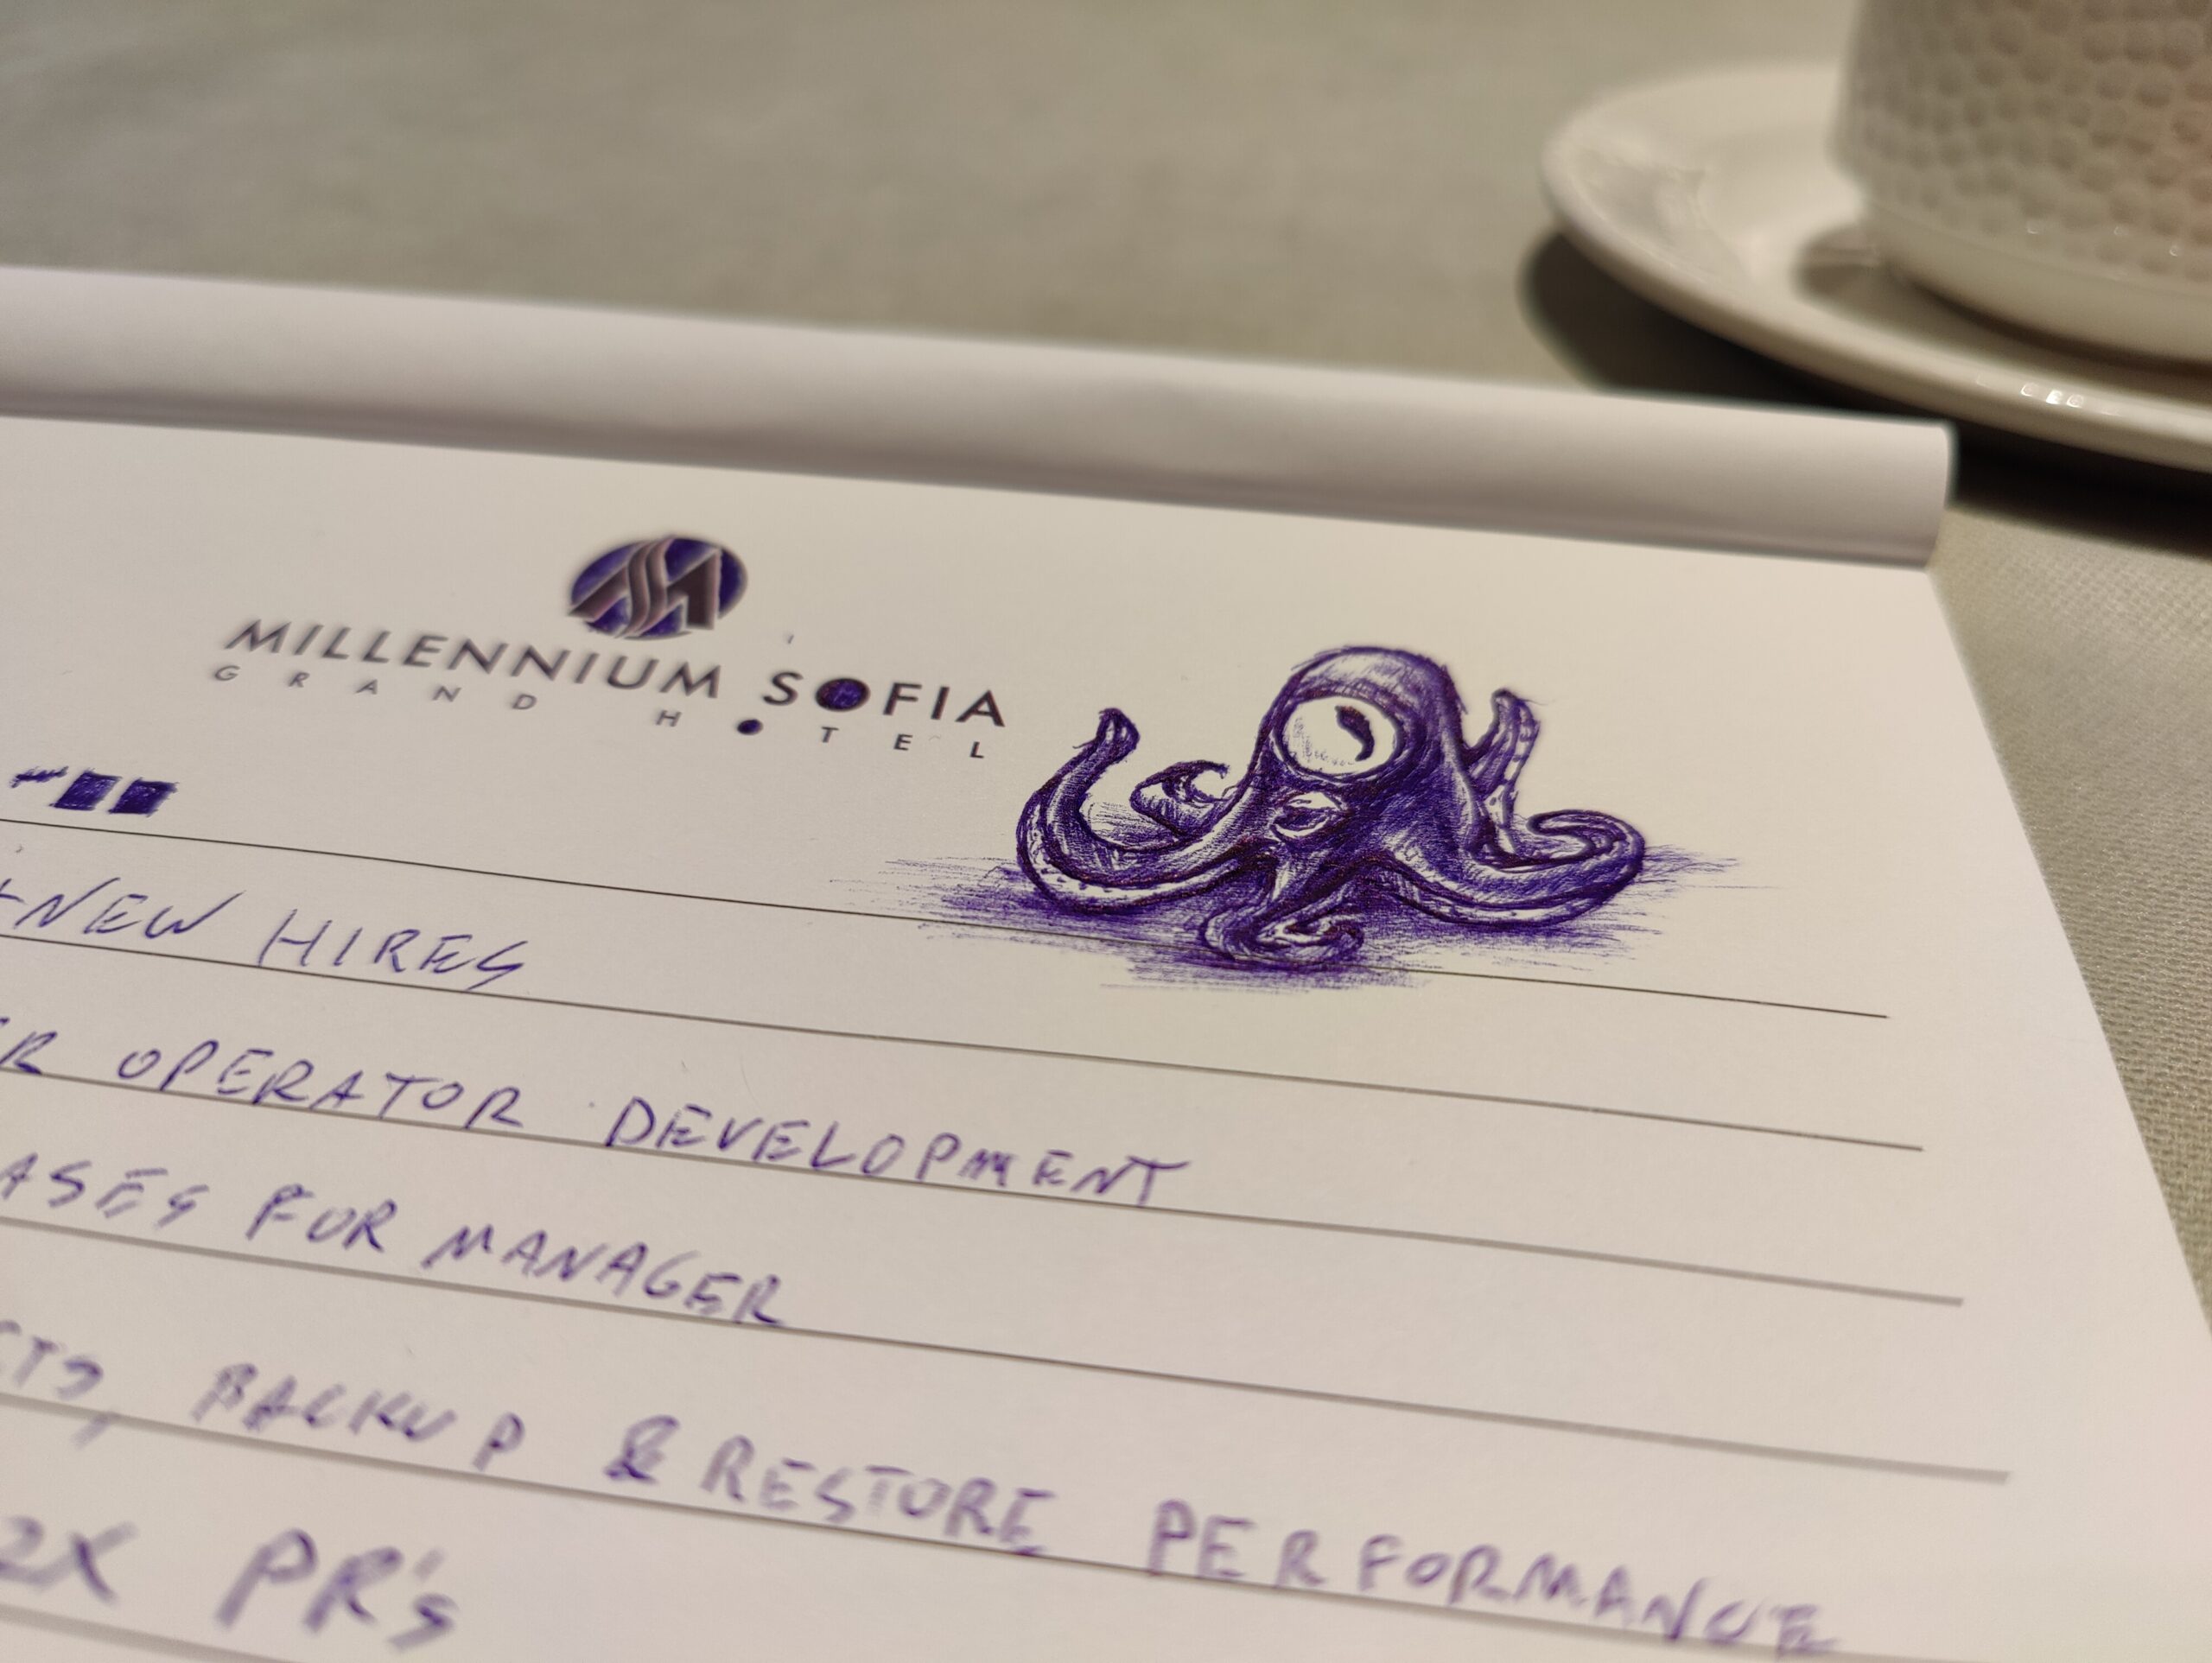 MILLENNIUM SOFIA
GRAND HOTEL
NEW HIRES
OPERATOR DEVELOPMENT
FOR MANAGER
BACKUP & RESTORE PERFORMANCE
2X PR's